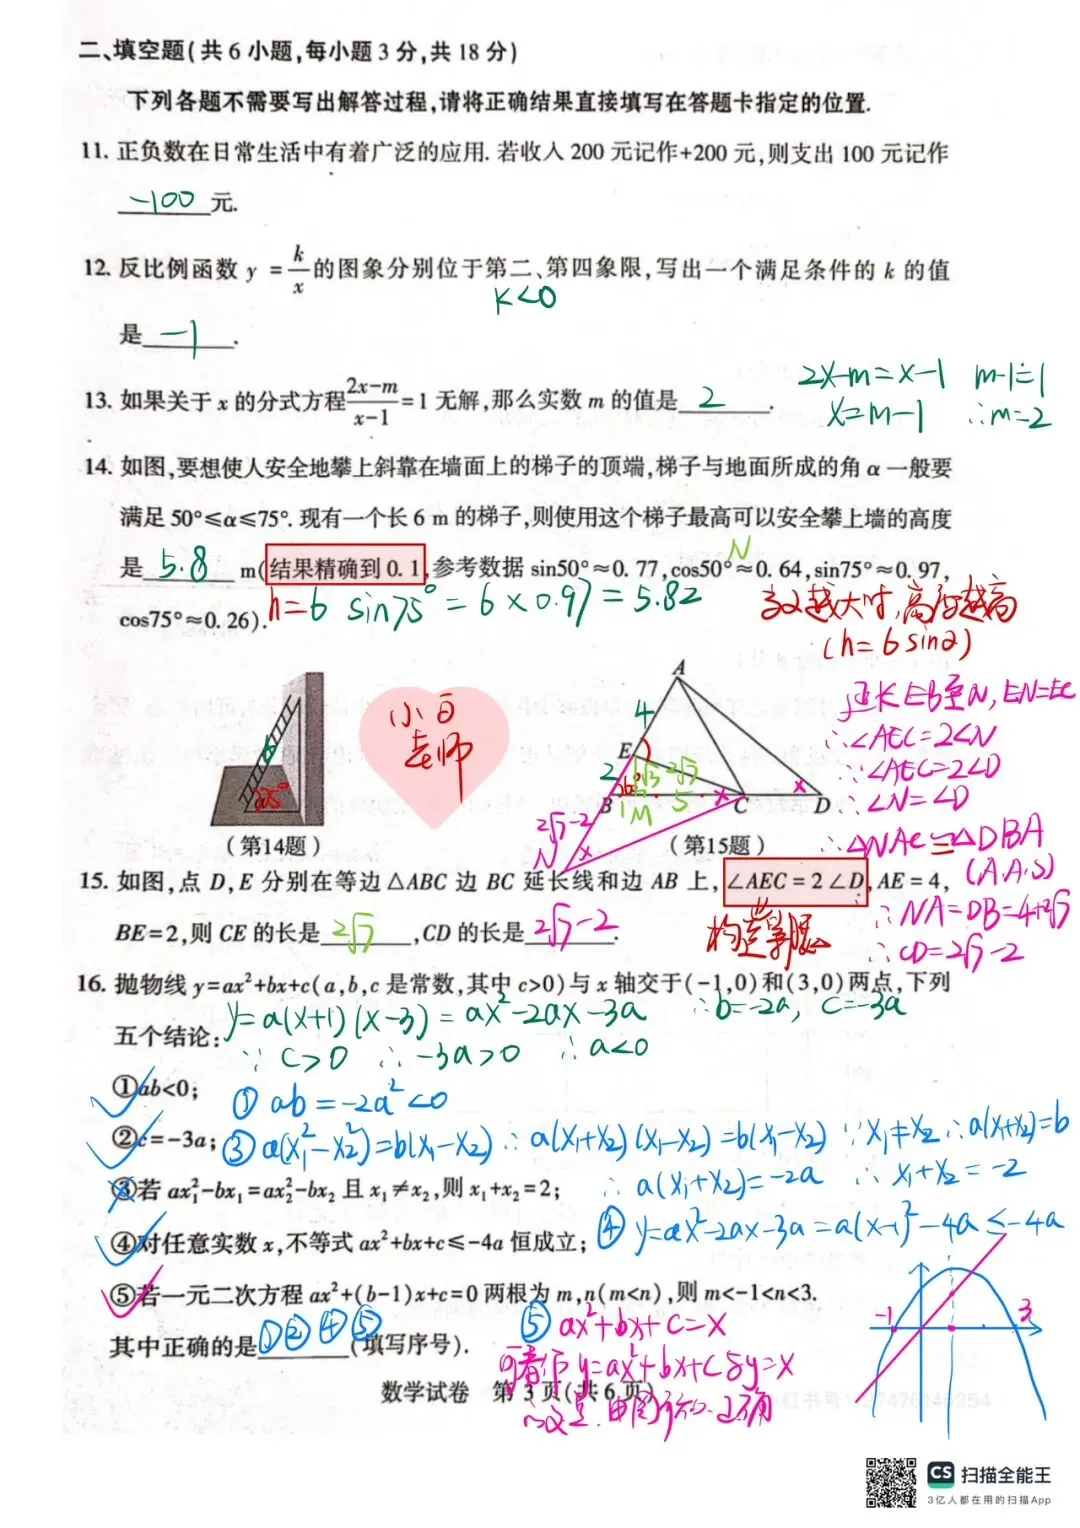 二、填空题(共6小题,每小题3分,共18分)
下列各题不需要写出解答过程,请将正确结果直接填写在答题卡指定的位置.
11. 正负数在日常生活中有着广泛的应用. 若收入200元记作+200元,则支出100元记作
-100 元.
12. 反比例函数 y = k/x 的图象分别位于第二、第四象限,写出一个满足条件的 k 的值
k<0
是 -1 .
2x-m=x-1 m-1=1
13. 如果关于 x 的分式方程 (2x-m)/(x-1) =1 无解,那么实数 m 的值是 2 .
x=m-1 ∴m=2
14. 如图,要想使人安全地攀上斜靠在墙面上的梯子的顶端,梯子与地面所成的角 α 一般要
满足 50°≤α≤75°. 现有一个长 6 m 的梯子,则使用这个梯子最高可以安全攀上墙的高度
是 5.8 m(结果精确到0.1,参考数据 sin50°≈0.77,cos50°≈0.64,sin75°≈0.97,
cos75°≈0.26).
h=6 sin75°=6×0.97=5.82
越大时,高度越高
(h=6sinα)
6
75°
(第14题)
小白
老师
A
4
E
2
60°
B
1 M 5
C
D
√3 2√7
2√7-2
N
(第15题)
延长EB至N,EN=EC
∴∠AEC=2∠N
∵∠AEC=2∠D
∴∠N=∠D
∴△NAC≌△DBA
(A.A.S)
∴NA=DB=4+2√7
∴CD=2√7-2
15. 如图,点 D,E 分别在等边△ABC 边 BC 延长线和边 AB 上,∠AEC=2∠D,AE=4,
BE=2,则 CE 的长是 2√7 ,CD 的长是 2√7-2 .
构造等腰△
16. 抛物线 y=ax²+bx+c(a,b,c 是常数,其中 c>0)与 x 轴交于(-1,0)和(3,0)两点,下列
五个结论:
y=a(x+1)(x-3)=ax²-2ax-3a ∴b=-2a, c=-3a
∵c>0 ∴-3a>0 ∴a<0
①ab<0;
① ab=-2a²<0
②c=-3a;
③ a(x₁²-x₂²)=b(x₁-x₂) ∴a(x₁+x₂)(x₁-x₂)=b(x₁-x₂) ∵x₁≠x₂ ∴a(x₁+x₂)=b
③若 ax₁²-bx₁=ax₂²-bx₂ 且 x₁≠x₂,则 x₁+x₂=2;
∴a(x₁+x₂)=-2a ∴x₁+x₂=-2
④对任意实数 x,不等式 ax²+bx+c≤-4a 恒成立;
④ y=ax²-2ax-3a=a(x-1)²-4a≤-4a
⑤若一元二次方程 ax²+(b-1)x+c=0 两根为 m,n(m<n),则 m<-1<n<3.
其中正确的是 ①②④⑤ (填写序号).
⑤ ax²+bx+c=x
可看作y=ax²+bx+c与y=x
的交点.由图可知.正确
-1
3
数学试卷 第3页(共6页)
CS 扫描全能王
3亿人都在用的扫描App